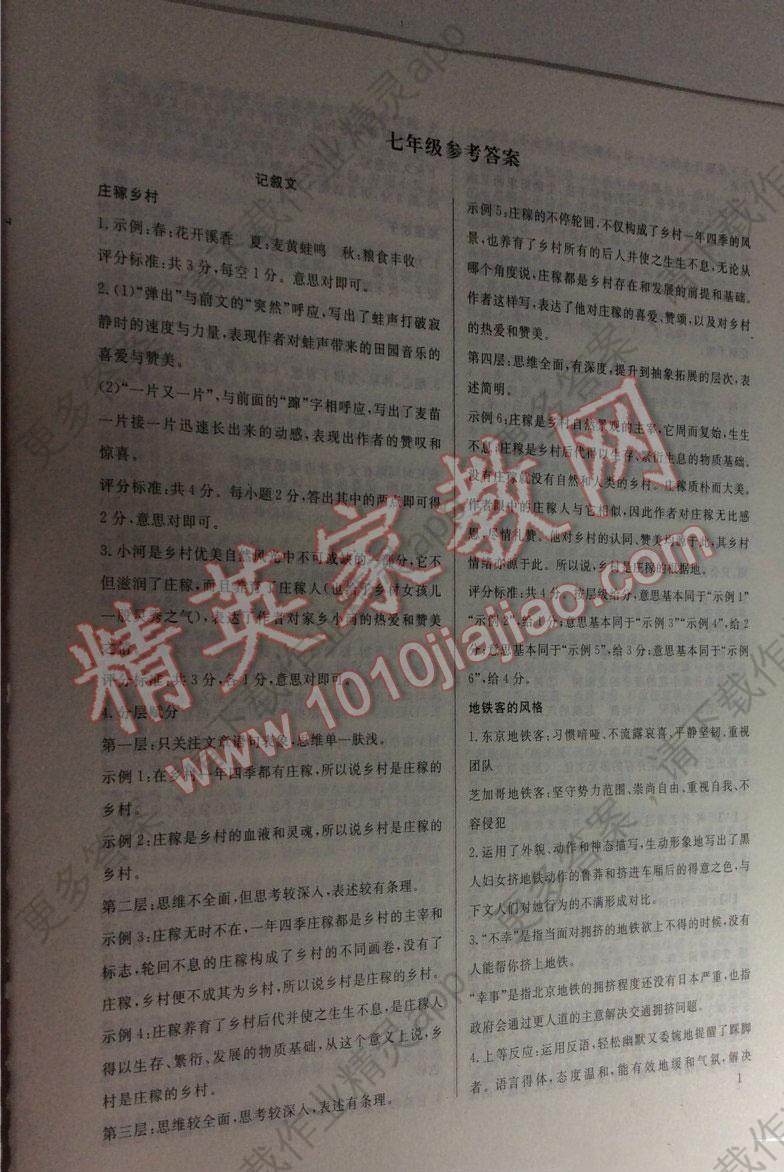 七年级参考答案
记叙文
庄稼乡村
1.示例:春:花开溪香 夏:麦黄蛙鸣 秋:粮食丰收
评分标准:共3分,每空1分。意思对即可。
2.(1)“弹出”与前文的“突然”呼应,写出了蛙声打破寂
静时的速度与力量,表现作者对蛙声带来的田园音乐的
喜爱与赞美。
(2)“一片又一片”,与前面的“蹿”字相呼应,写出了麦苗
一片接一片迅速长出来的动感,表现出作者的赞叹和
惊喜。
评分标准:共4分。每小题2分,答出其中的两点即可得
2分,意思对即可。
3.小河是乡村优美自然风光中不可或缺的一部分,它不
但滋润了庄稼,而且养育了庄稼人(也给予乡村女孩儿
一股灵秀之气),表达了作者对家乡小河的热爱和赞美
之情。
评分标准:共3分,各1分,意思对即可。
4.分层赋分
第一层:只关注文章语句表象,思维单一肤浅。
示例1:在乡村一年四季都有庄稼,所以说乡村是庄稼的
乡村。
示例2:庄稼是乡村的血液和灵魂,所以说乡村是庄稼的
乡村。
第二层:思维不全面,但思考较深入,表述较有条理。
示例3:庄稼无时不在,一年四季庄稼都是乡村的主宰和
标志,轮回不息的庄稼构成了乡村的不同画卷,没有了
庄稼,乡村便不成其为乡村,所以说乡村是庄稼的乡村。
示例4:庄稼养育了乡村后代并使之生生不息,是庄稼人
得以生存、繁衍、发展的物质基础,从这个意义上说,乡
村是庄稼的乡村。
第三层:思维较全面,思考较深入,表述有条理。
示例5:庄稼的不停轮回,不仅构成了乡村一年四季的风
景,也养育了乡村所有的后人并使之生生不息,无论从
哪个角度说,庄稼都是乡村存在和发展的前提和基础。
作者这样写,表达了他对庄稼的喜爱、赞颂,以及对乡村
的热爱和赞美。
第四层:思维全面,有深度,提升到抽象拓展的层次,表
述简明。
示例6:庄稼是乡村自然景观的主宰,它周而复始,生生
不息;庄稼是乡村后代得以生存、繁衍生息的物质基础。
没有庄稼就没有自然和人类的乡村。庄稼质朴而大美。
作者眼中的庄稼人与它相似,因此作者对庄稼无比感
恩,尽情礼赞。他对乡村的认同、赞美均源于此,其乡村
情结亦源于此。所以说,乡村是庄稼的根据地。
评分标准:共4分。按层级给分,意思基本同于“示例1”
“示例2”,给1分;意思基本同于“示例3”“示例4”,给2
分;意思基本同于“示例5”,给3分;意思基本同于“示例
6”,给4分。
地铁客的风格
1.东京地铁客:习惯喑哑、不流露哀喜,平静坚韧、重视
团队
芝加哥地铁客:坚守势力范围、崇尚自由、重视自我、不
容侵犯
2.运用了外貌、动作和神态描写,生动形象地写出了黑
人妇女挤地铁动作的鲁莽和挤进车厢后的得意之色,与
下文人们对她行为的不满形成对比。
3.“不幸”是指当面对拥挤的地铁欲上不得的时候,没有
人能帮你挤上地铁。
“幸事”是指北京地铁的拥挤程度还没有日本严重,也指
政府会通过更人道的主意解决交通拥挤问题。
4.上等反应:运用反语,轻松幽默又委婉地提醒了踩脚
者。语言得体,态度温和,能有效地缓和气氛,解决
1
精英家教网
www.1010jiajiao.com
更多答案,请下载作业精灵app